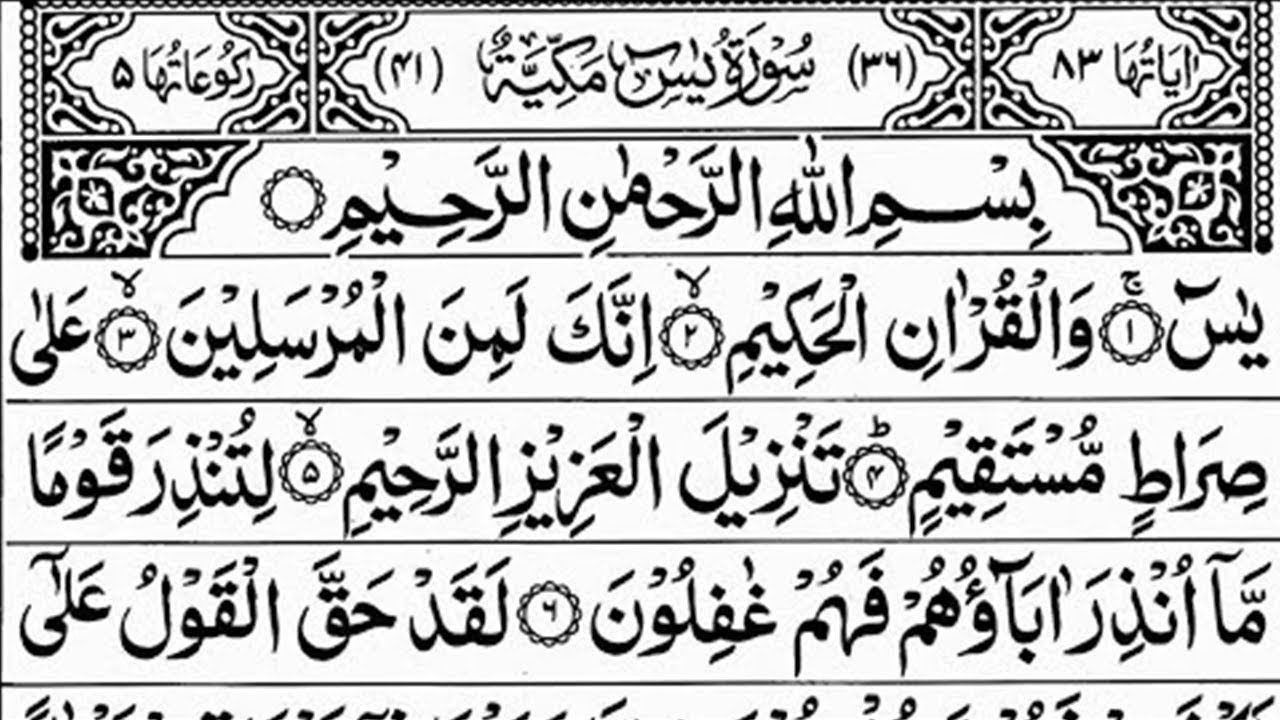 اٰيَاتُهَا ٨٣ (٣٦) سُوْرَةُ يٰسٓ مَكِّيَّةٌ (٤١) رُكُوْعَاتُهَا ٥
بِسْمِ اللّٰهِ الرَّحْمٰنِ الرَّحِيْمِ
يٰسٓ ۚ‏ ﴿١﴾ وَالْقُرْاٰنِ الْحَكِيْمِ ۙ‏ ﴿٢﴾ اِنَّكَ لَمِنَ الْمُرْسَلِيْنَ ۙ‏ ﴿٣﴾ عَلٰى
صِرَاطٍ مُّسْتَقِيْمٍ ؕ‏ ﴿۴﴾ تَنْزِيْلَ الْعَزِيْزِ الرَّحِيْمِ ۙ‏ ﴿۵﴾ لِتُنْذِرَ قَوْمًا
مَّاۤ اُنْذِرَ اٰبَآؤُهُمْ فَهُمْ غٰفِلُوْنَ ﴿۶﴾ لَقَدْ حَقَّ الْقَوْلُ عَلٰٓى